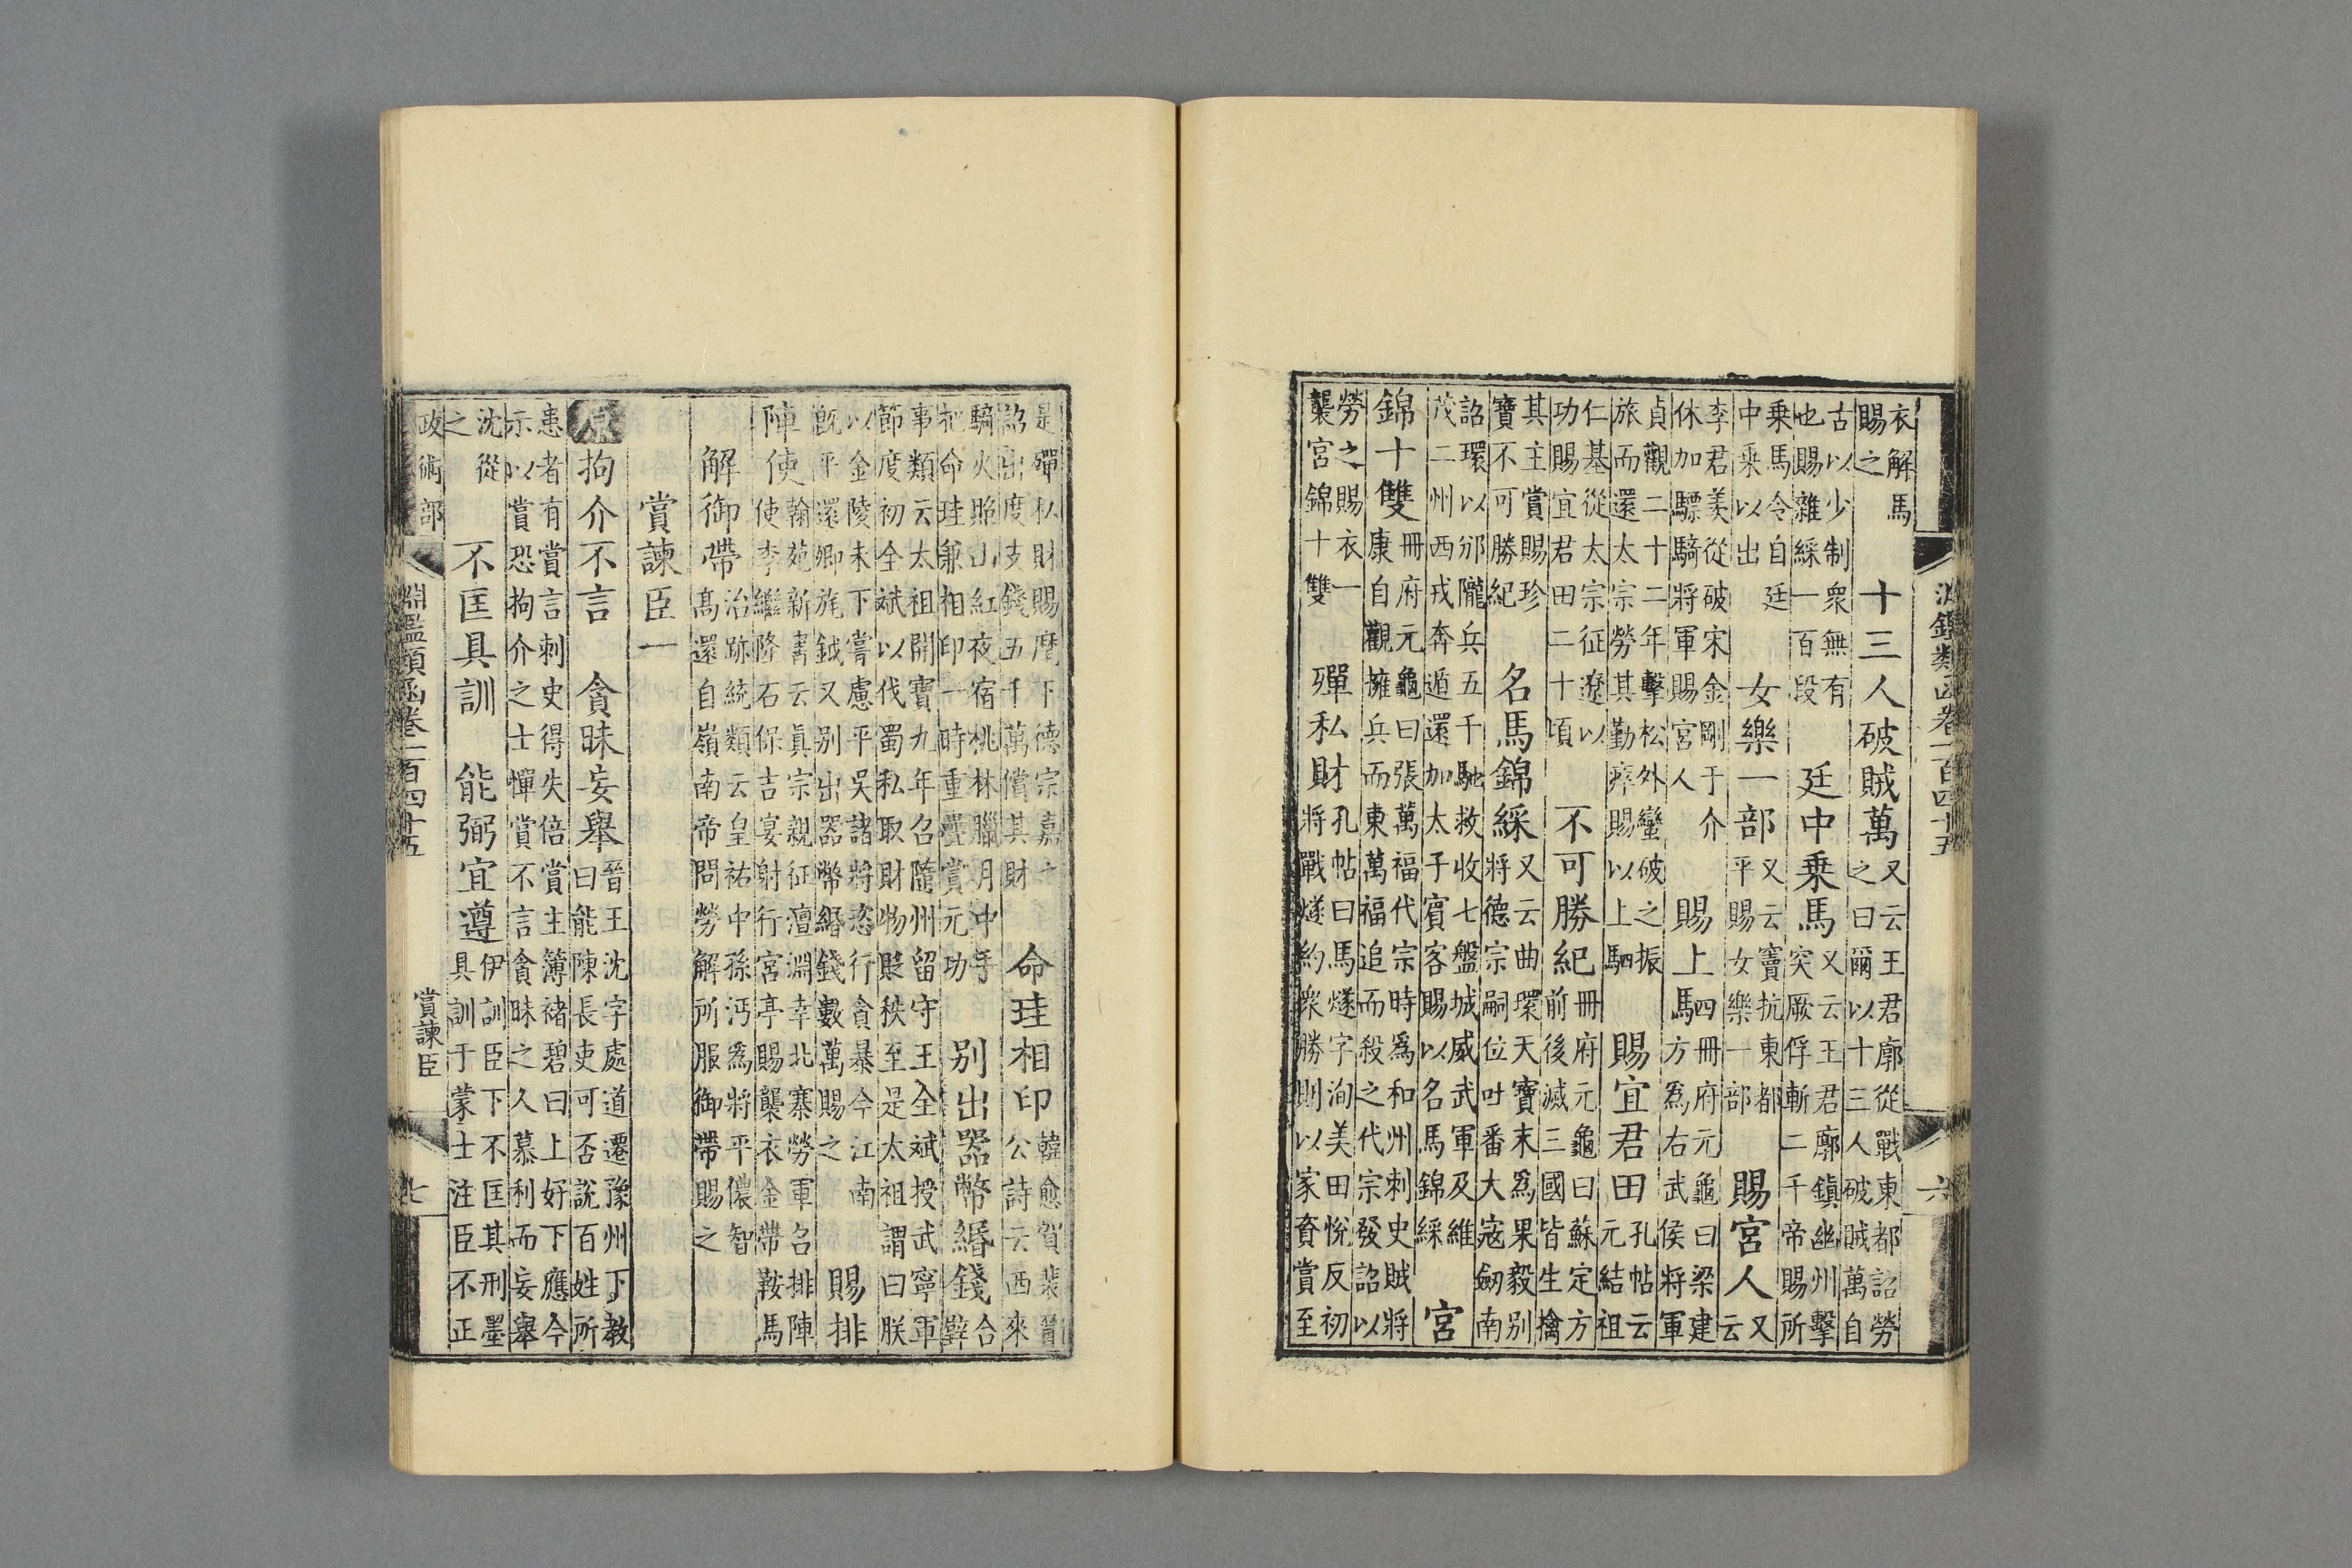 淵鑑類函卷一百四十五 六
衣解馬
賜之
十三人破賊萬
又云王君廓從戰東都詔勞
之曰爾以十三人破賊萬自
古以少制衆無有
也賜雜綵一百段
廷中乗馬
又云王君廓鎮幽州擊
突厥俘斬二千帝賜所
乗馬令自廷
中乗以出
女樂一部
又云竇抗東都
平賜女樂一部
賜宮人
又
云
李君羡從破宋金剛于介
休加驃騎將軍賜宮人
賜上駟
冊府元龜曰梁建
方爲右武侯將軍
貞觀二十二年擊松外蠻破之振
旅而還太宗勞其勤瘁賜以上駟
賜宜君田
孔帖云
元結祖
仁基從太宗征遼以
功賜宜君田二十頃
不可勝紀
冊府元龜曰蘇定方
前後滅三國皆生擒
其主賞賜珍
寶不可勝紀
名馬錦綵
又云曲環天寶末爲果毅别
將德宗嗣位吐番大寇劒南
詔環以邠隴兵五千馳救收七盤城威武軍及維
茂二州西戎奔遁還加太子賓客賜以名馬錦綵
宮
錦十雙
冊府元龜曰張萬福代宗時爲和州刺史賊將
康自觀擁兵而東萬福追而殺之代宗發詔以
勞之賜衣一
襲宮錦十雙
殫私財
孔帖曰馬燧字洵美田悅反初
將戰燧約衆勝則以家資賞至
是殫私財賜麾下德宗嘉之
詔出度支錢五千萬償其財
命珪相印
韓愈賀裴晉
公詩云西來
騎火照山紅夜宿桃林臘月中手
把命珪兼相印一時重疊賞元功
别出器幣緡錢
合
璧
事類云太祖開寶九年召隨州留守王全斌授武寧軍
節度初全斌以伐蜀私取財物貶秩至是太祖謂曰朕
以金陵未下嘗慮平吳諸將恣行貪暴今江南
旣平還卿旄鉞又别出器幣緡錢數萬賜之
賜排
陣使
翰苑新書云眞宗親征澶淵幸北寨勞軍召排陣
使李繼隆石保吉宴射行宮亭賜襲衣金帶鞍馬
解御帶
治跡統類云皇祐中孫沔爲將平儂智
高還自嶺南帝問勞解所服御帶賜之
賞諫臣一
原拘介不言
貪昧妄舉
晉王沈字處道遷豫州下教
曰能陳長吏可否說百姓所
患者有賞言刺史得失倍賞主簿褚碧曰上好下應今
示以賞恐拘介之士憚賞不言貪昧之人慕利而妄舉
沈從
之
不匡具訓
能弼宜遵
伊訓臣下不匡其刑墨
具訓于蒙士注臣不正
政術部 淵鑑類函卷一百四十五 賞諫臣 七